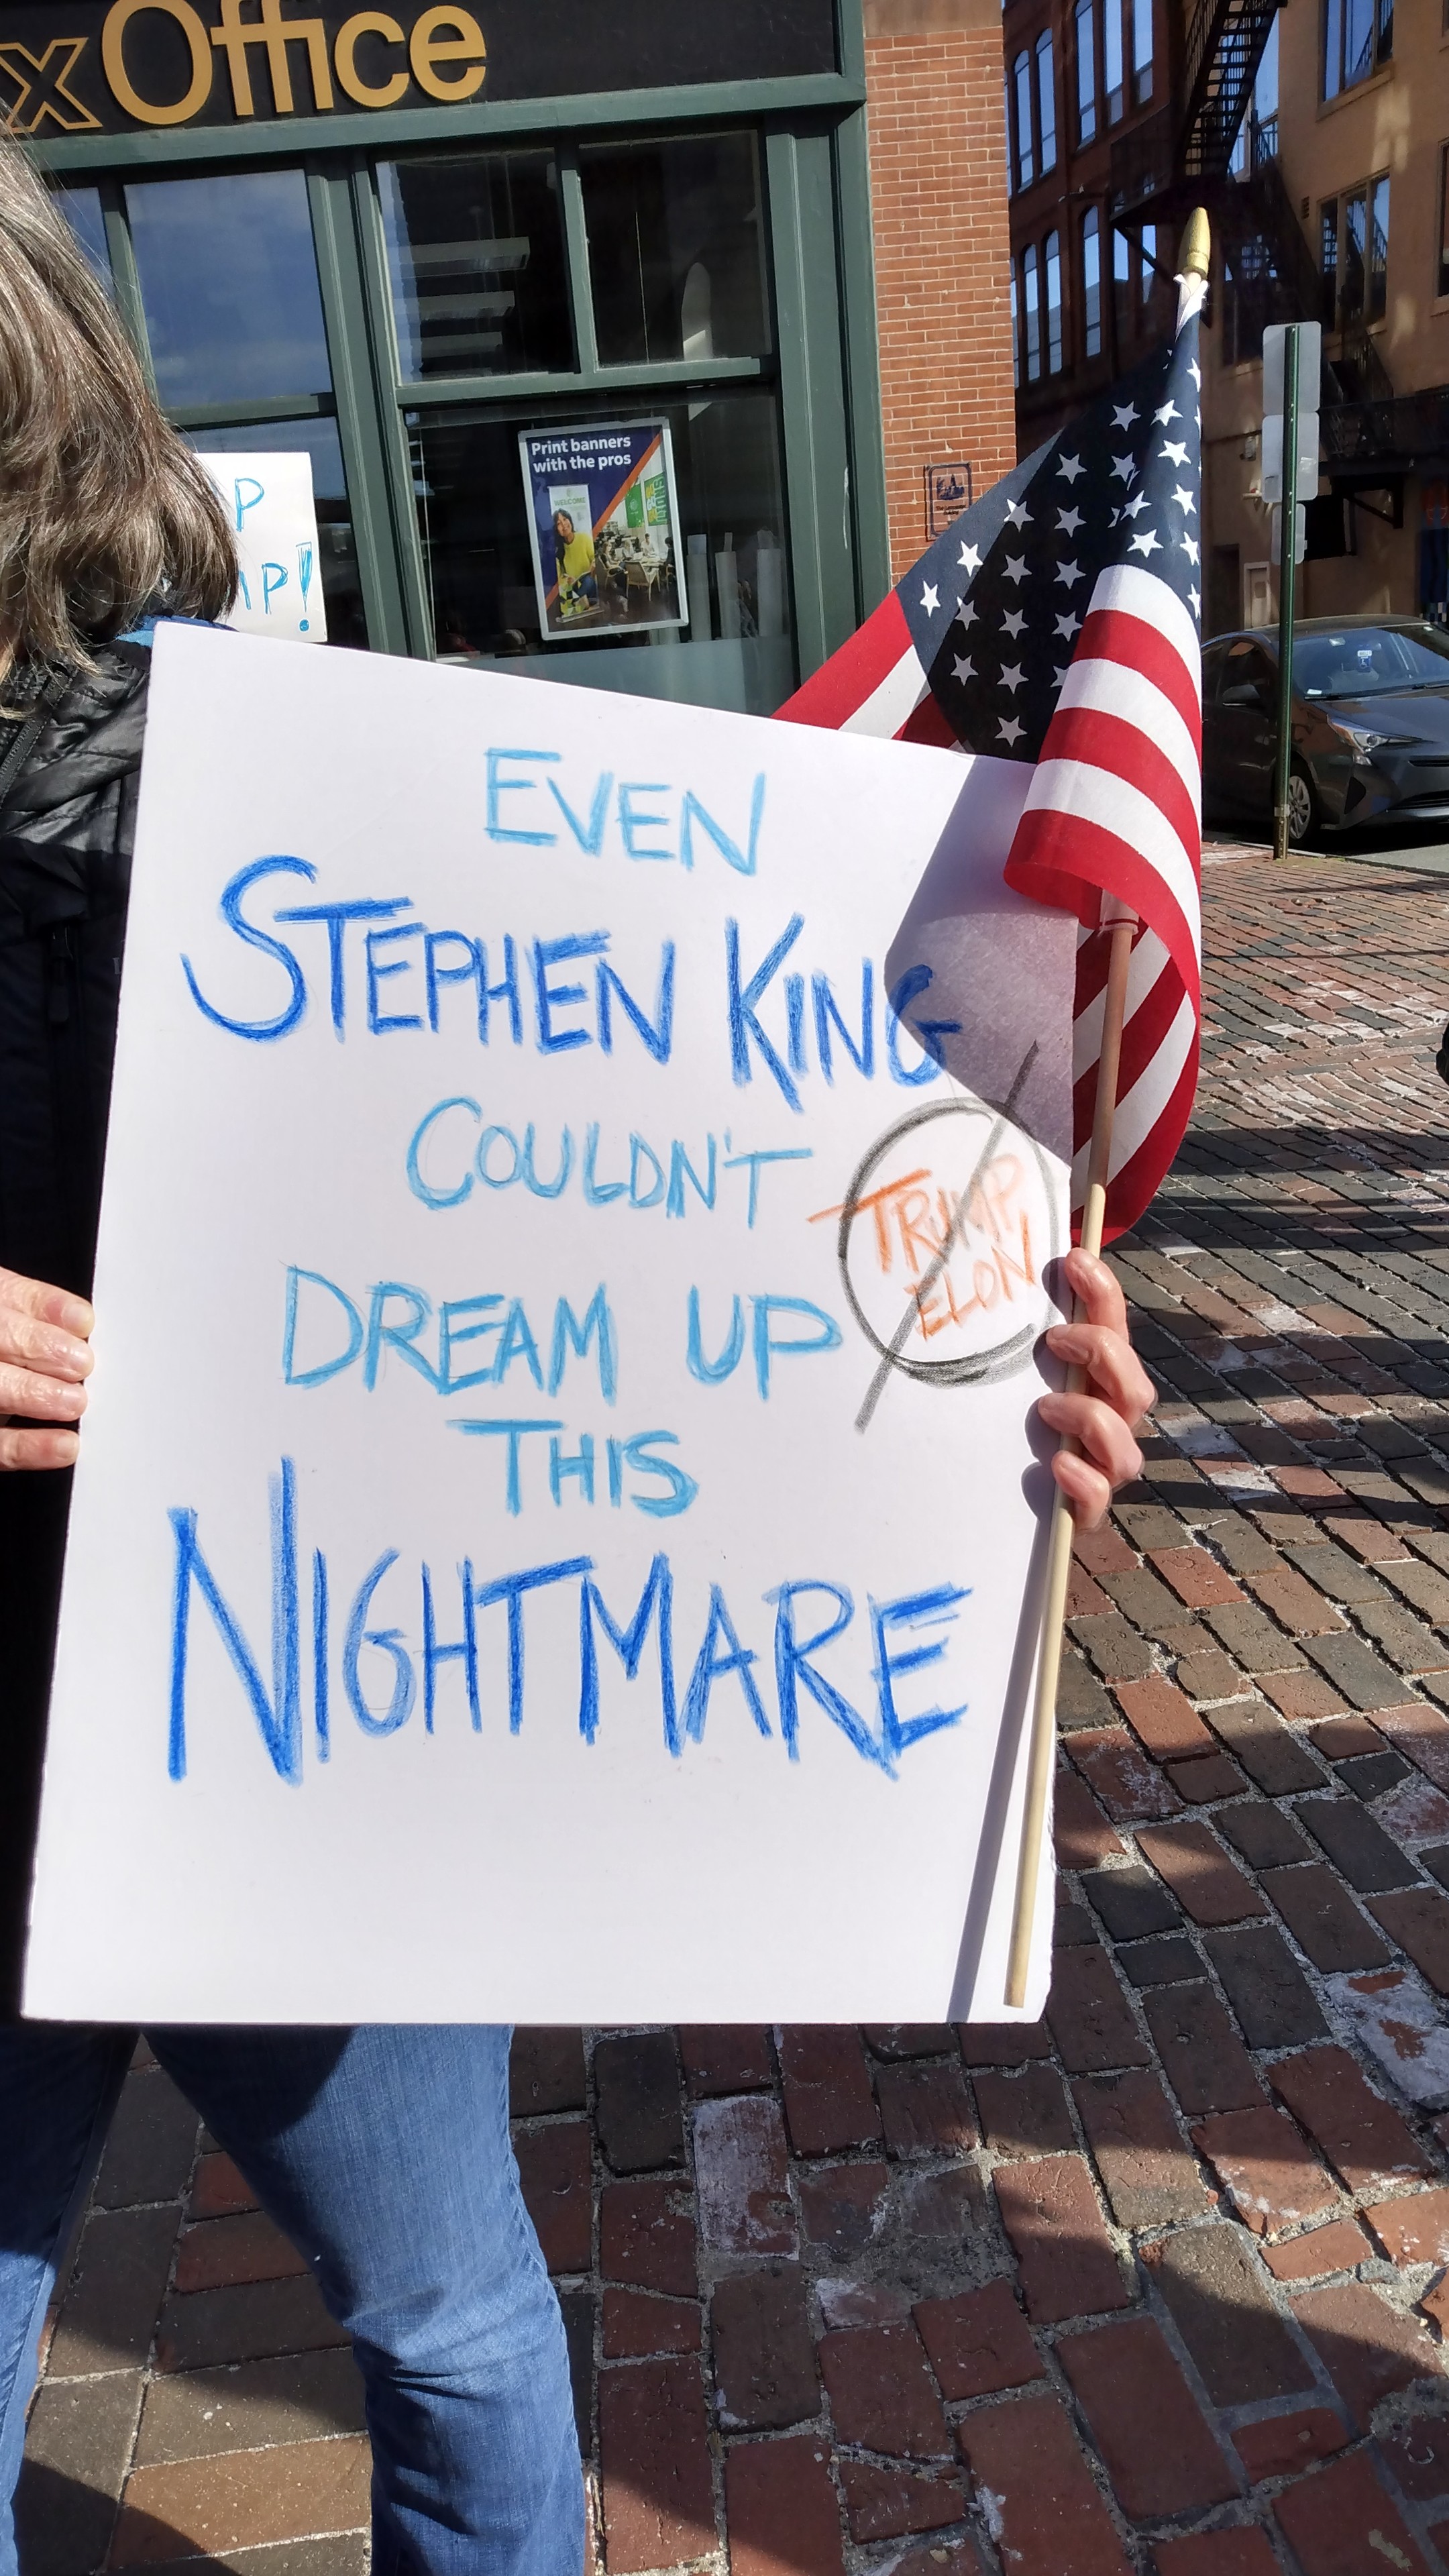 x Office
Print banners
with the pros
WELCOME
P
MP!
EVEN
STEPHEN KING
COULDN'T
TRUMP,
ELON
DREAM UP
THIS
NIGHTMARE